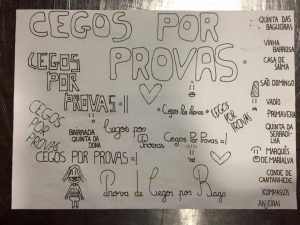 CEGOS POR
PROVAS
CEGOS
POR
PROVAS =||
CEGOS
POR
PROVAS
BAIRRADA
QUINTA DA
DONA
Cegos por
Provas
"Cegos Por Provas"
CEGOS
POR
PROVAS
Cegos Por Provas =)
CEGOS POR PROVAS =)
Prova de Cegos por Baga
QUINTA DAS
BAGEIRAS
VINHA
BARROSA
CASA DE
SAIMA
SÃO DOMINGOS
VADIO
PRIMAVERA
QUINTA DA
MARQUÊS
DE MARIALVA
CONDE DE
CANTANHEDE
KOMPASSUS